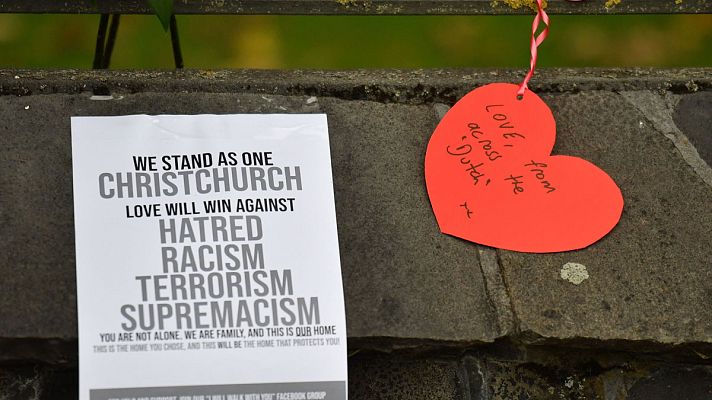 WE STAND AS ONE
CHRISTCHURCH
LOVE WILL WIN AGAINST
HATRED
RACISM
TERRORISM
SUPREMACISM
YOU ARE NOT ALONE. WE ARE FAMILY, AND THIS IS OUR HOME
THIS IS THE HOME YOU CHOSE, AND THIS WILL BE THE HOME THAT PROTECTS YOU!
FOR HELP AND SUPPORT, JOIN OUR "I WILL WALK WITH YOU" FACEBOOK GROUP
LOVE, from
across the
'Dutch'
xx